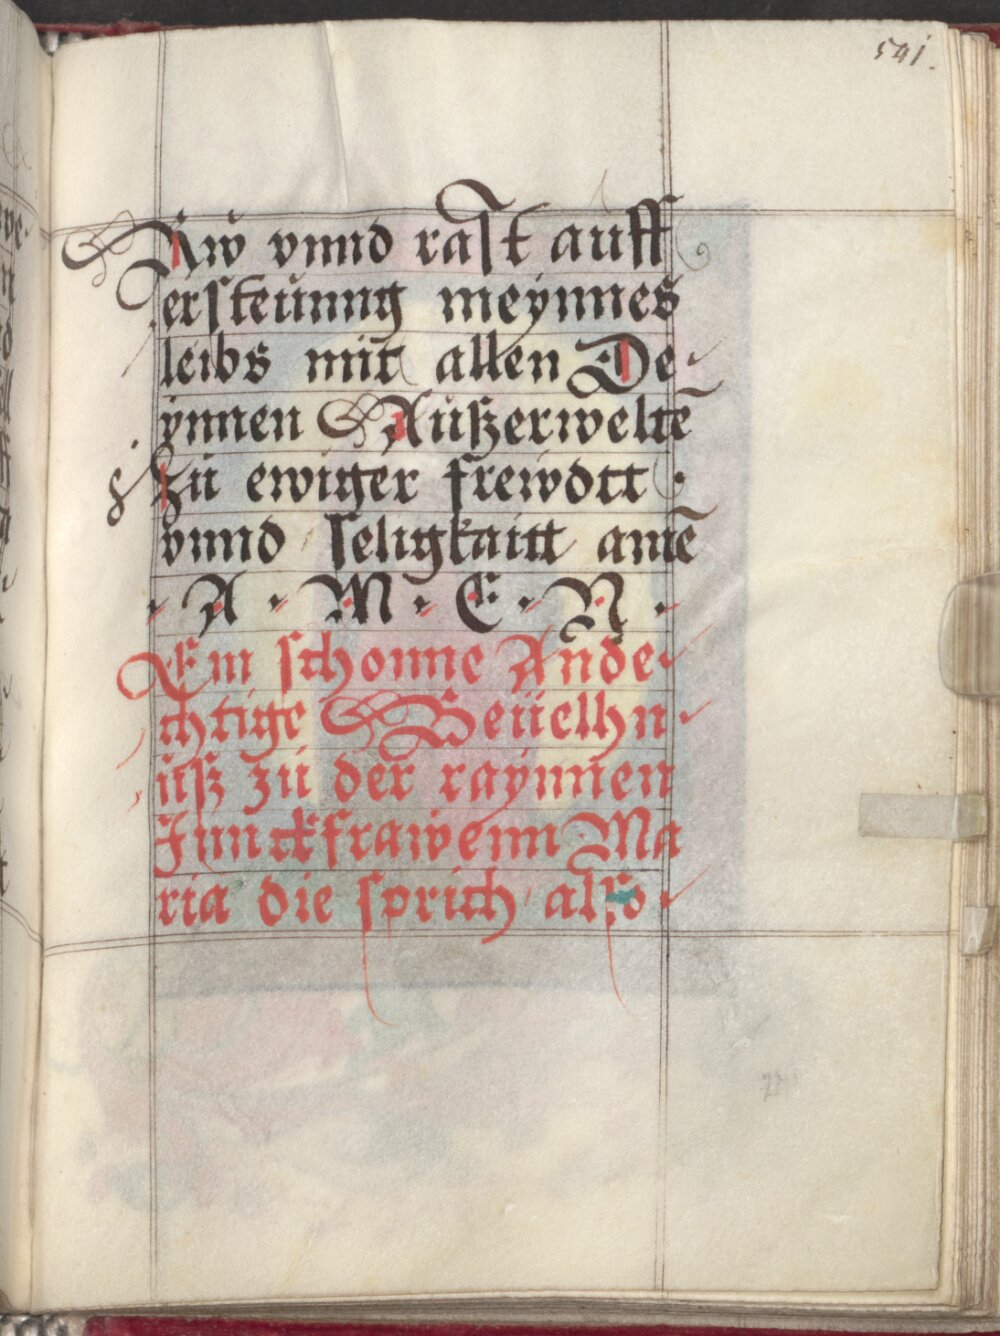 541.
Rẅ vnnd rast auff
ersteünng meynnes
leibs mit allen De-
ynnen Außerweltē
Zü ewiger frewdtt
vnnd seligkaitt amē
· A · M · E · N ·
Ein schonne Ande-
chtige Beüelhn-
üsz zü der raynnen
Junnckfrawenn Ma
ria die sprich also